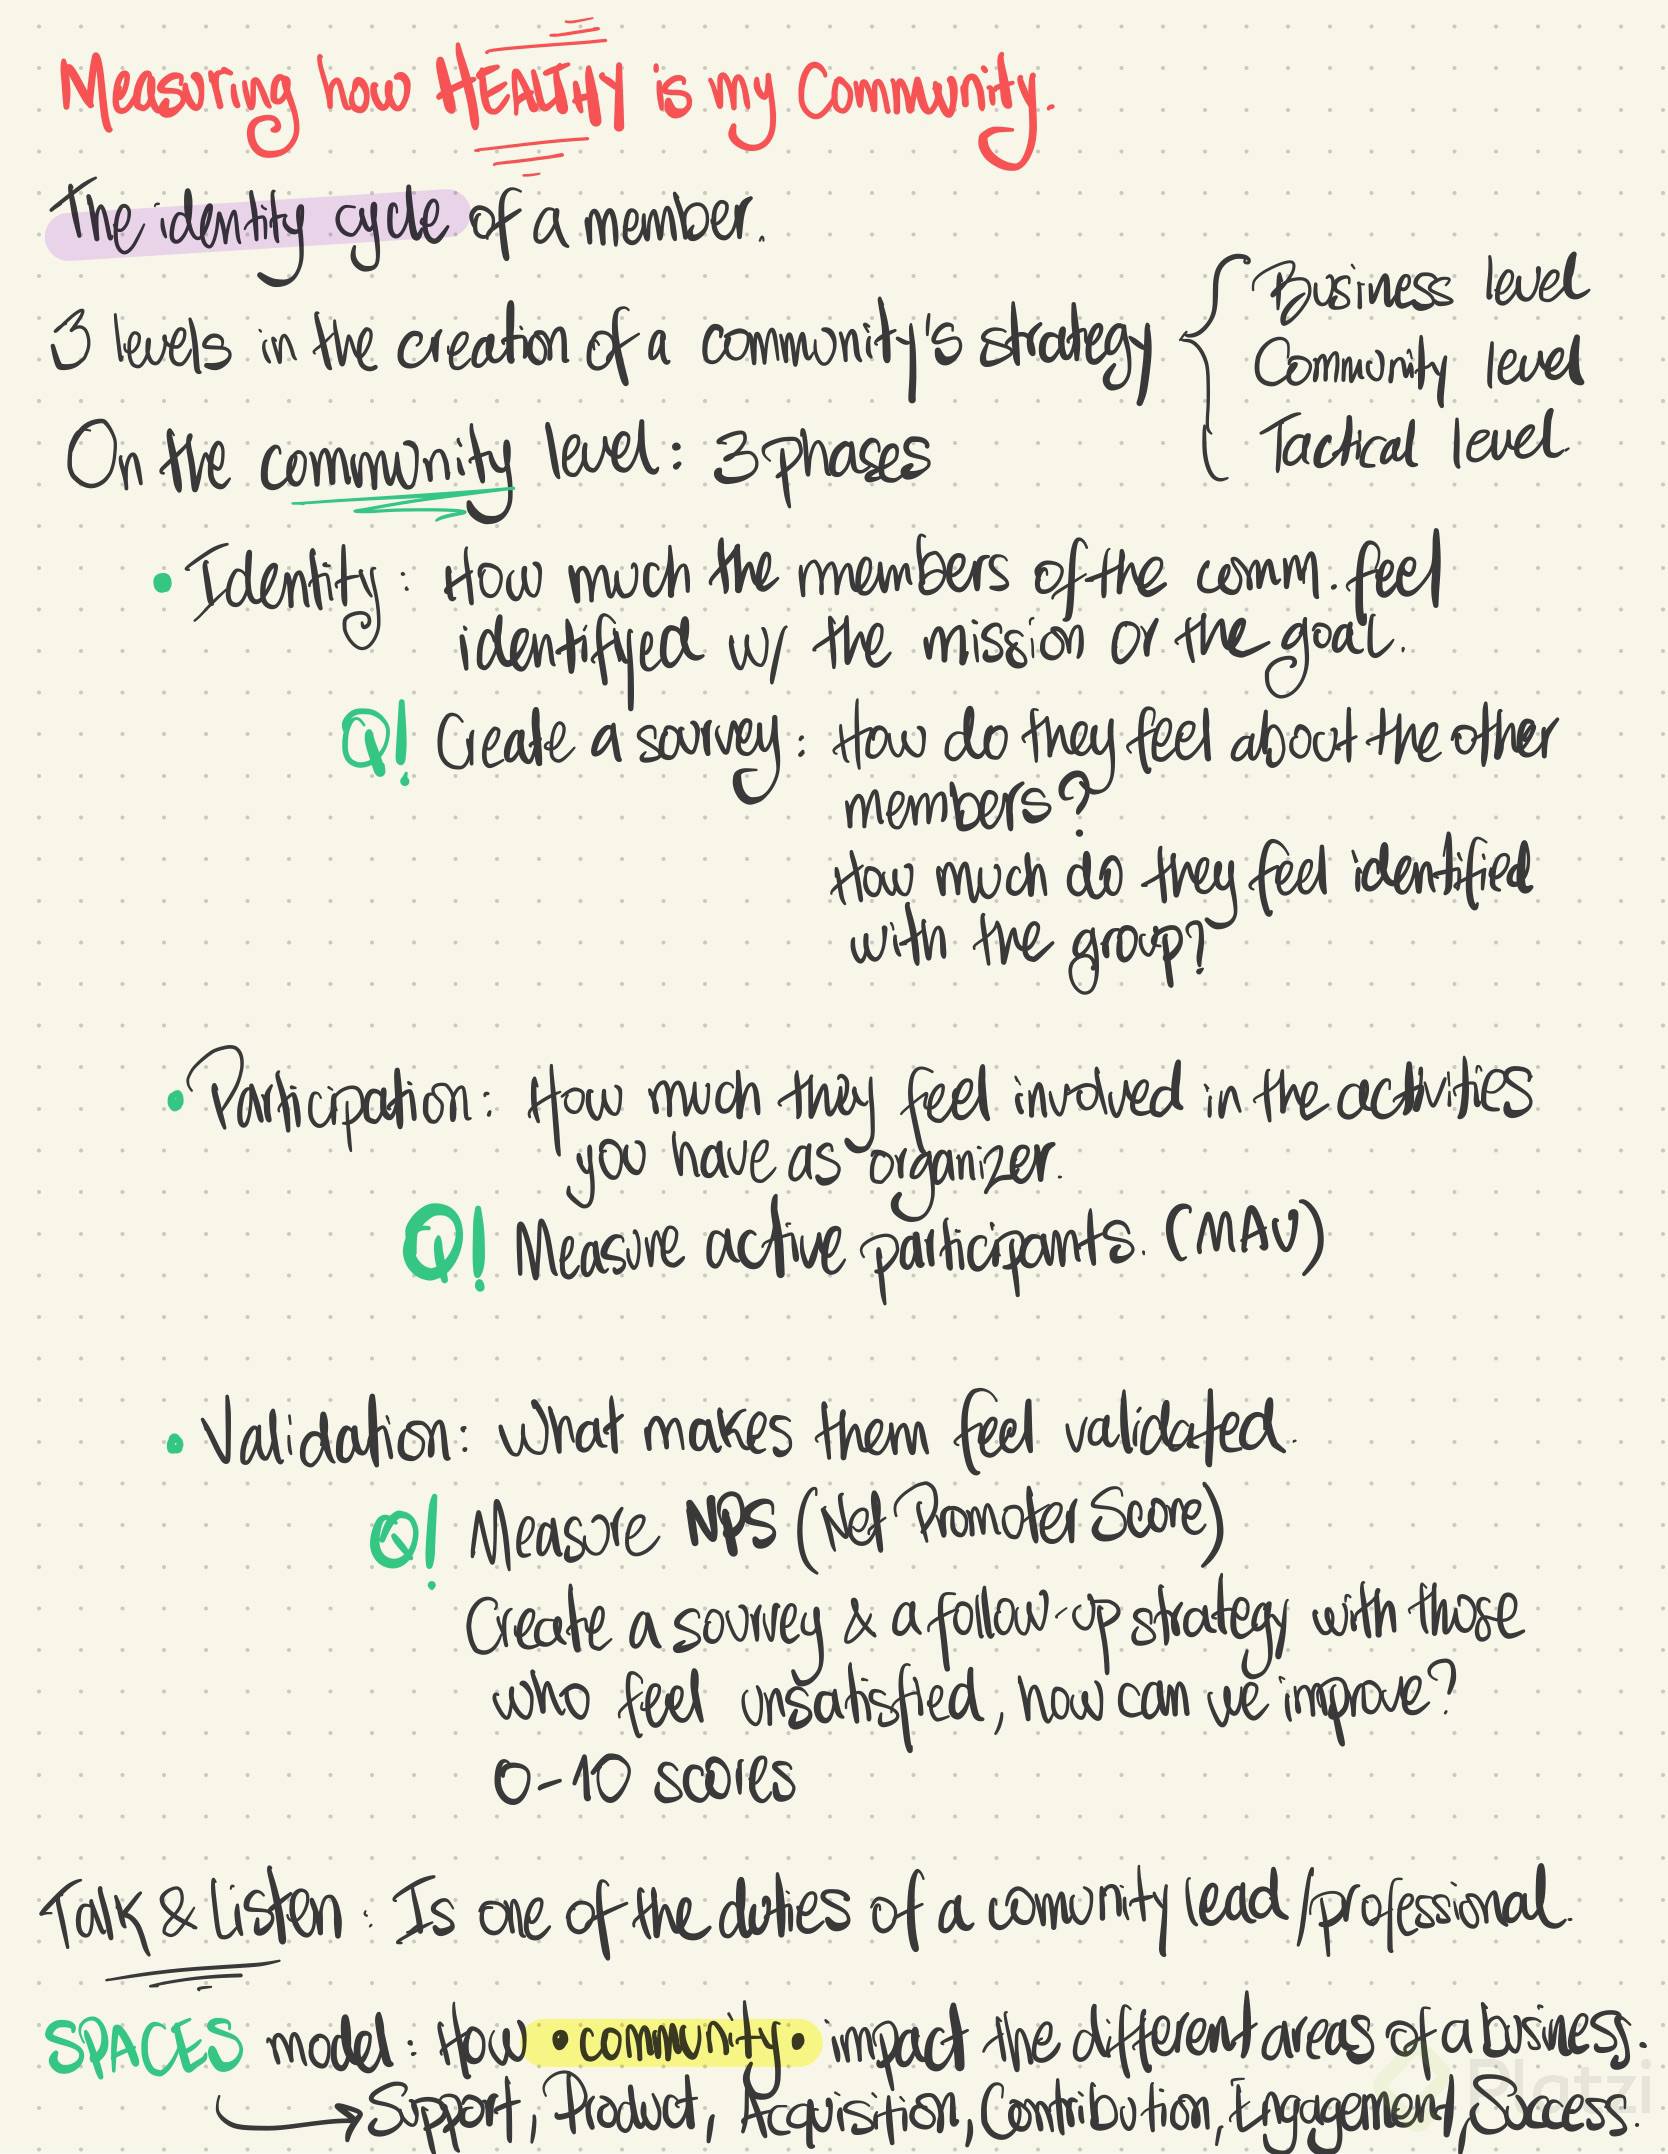 Measuring how HEALTHY is my Community.
The identity cycle of a member.
3 levels in the creation of a community's strategy
Business level
Community level
Tactical level
On the community level: 3 phases
• Identity: How much the members of the comm. feel
identifyed w/ the mission or the goal.
Q! Create a sourvey: How do they feel about the other
members?
How much do they feel identified
with the group?
• Participation: How much they feel involved in the activities
you have as organizer.
Q! Measure active participants. (MAU)
• Validation: What makes them feel validated.
Q! Measure NPS (Net Promoter Score)
Create a sourvey & a follow-up strategy with those
who feel unsatisfied, how can we improve?
0-10 scores
Talk & Listen: Is one of the duties of a comunity lead/professional.
SPACES model: How • community • impact the different areas of a business.
Support, Product, Acquisition, Contribution, Engagement, Success.
Platzi